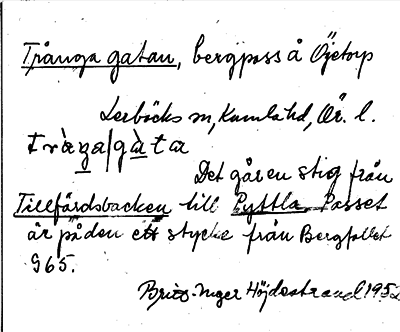 Trånga gatan, bergpass å Öjetorp
Lerbäcks sn, Kumla hd, Ör. l.
Det går en stig från
Tillfärdsbacken till Pyttla. Passet
är på den ett stycke från Bergfallet
965.
Britt-Inger Höjdestrand 1952